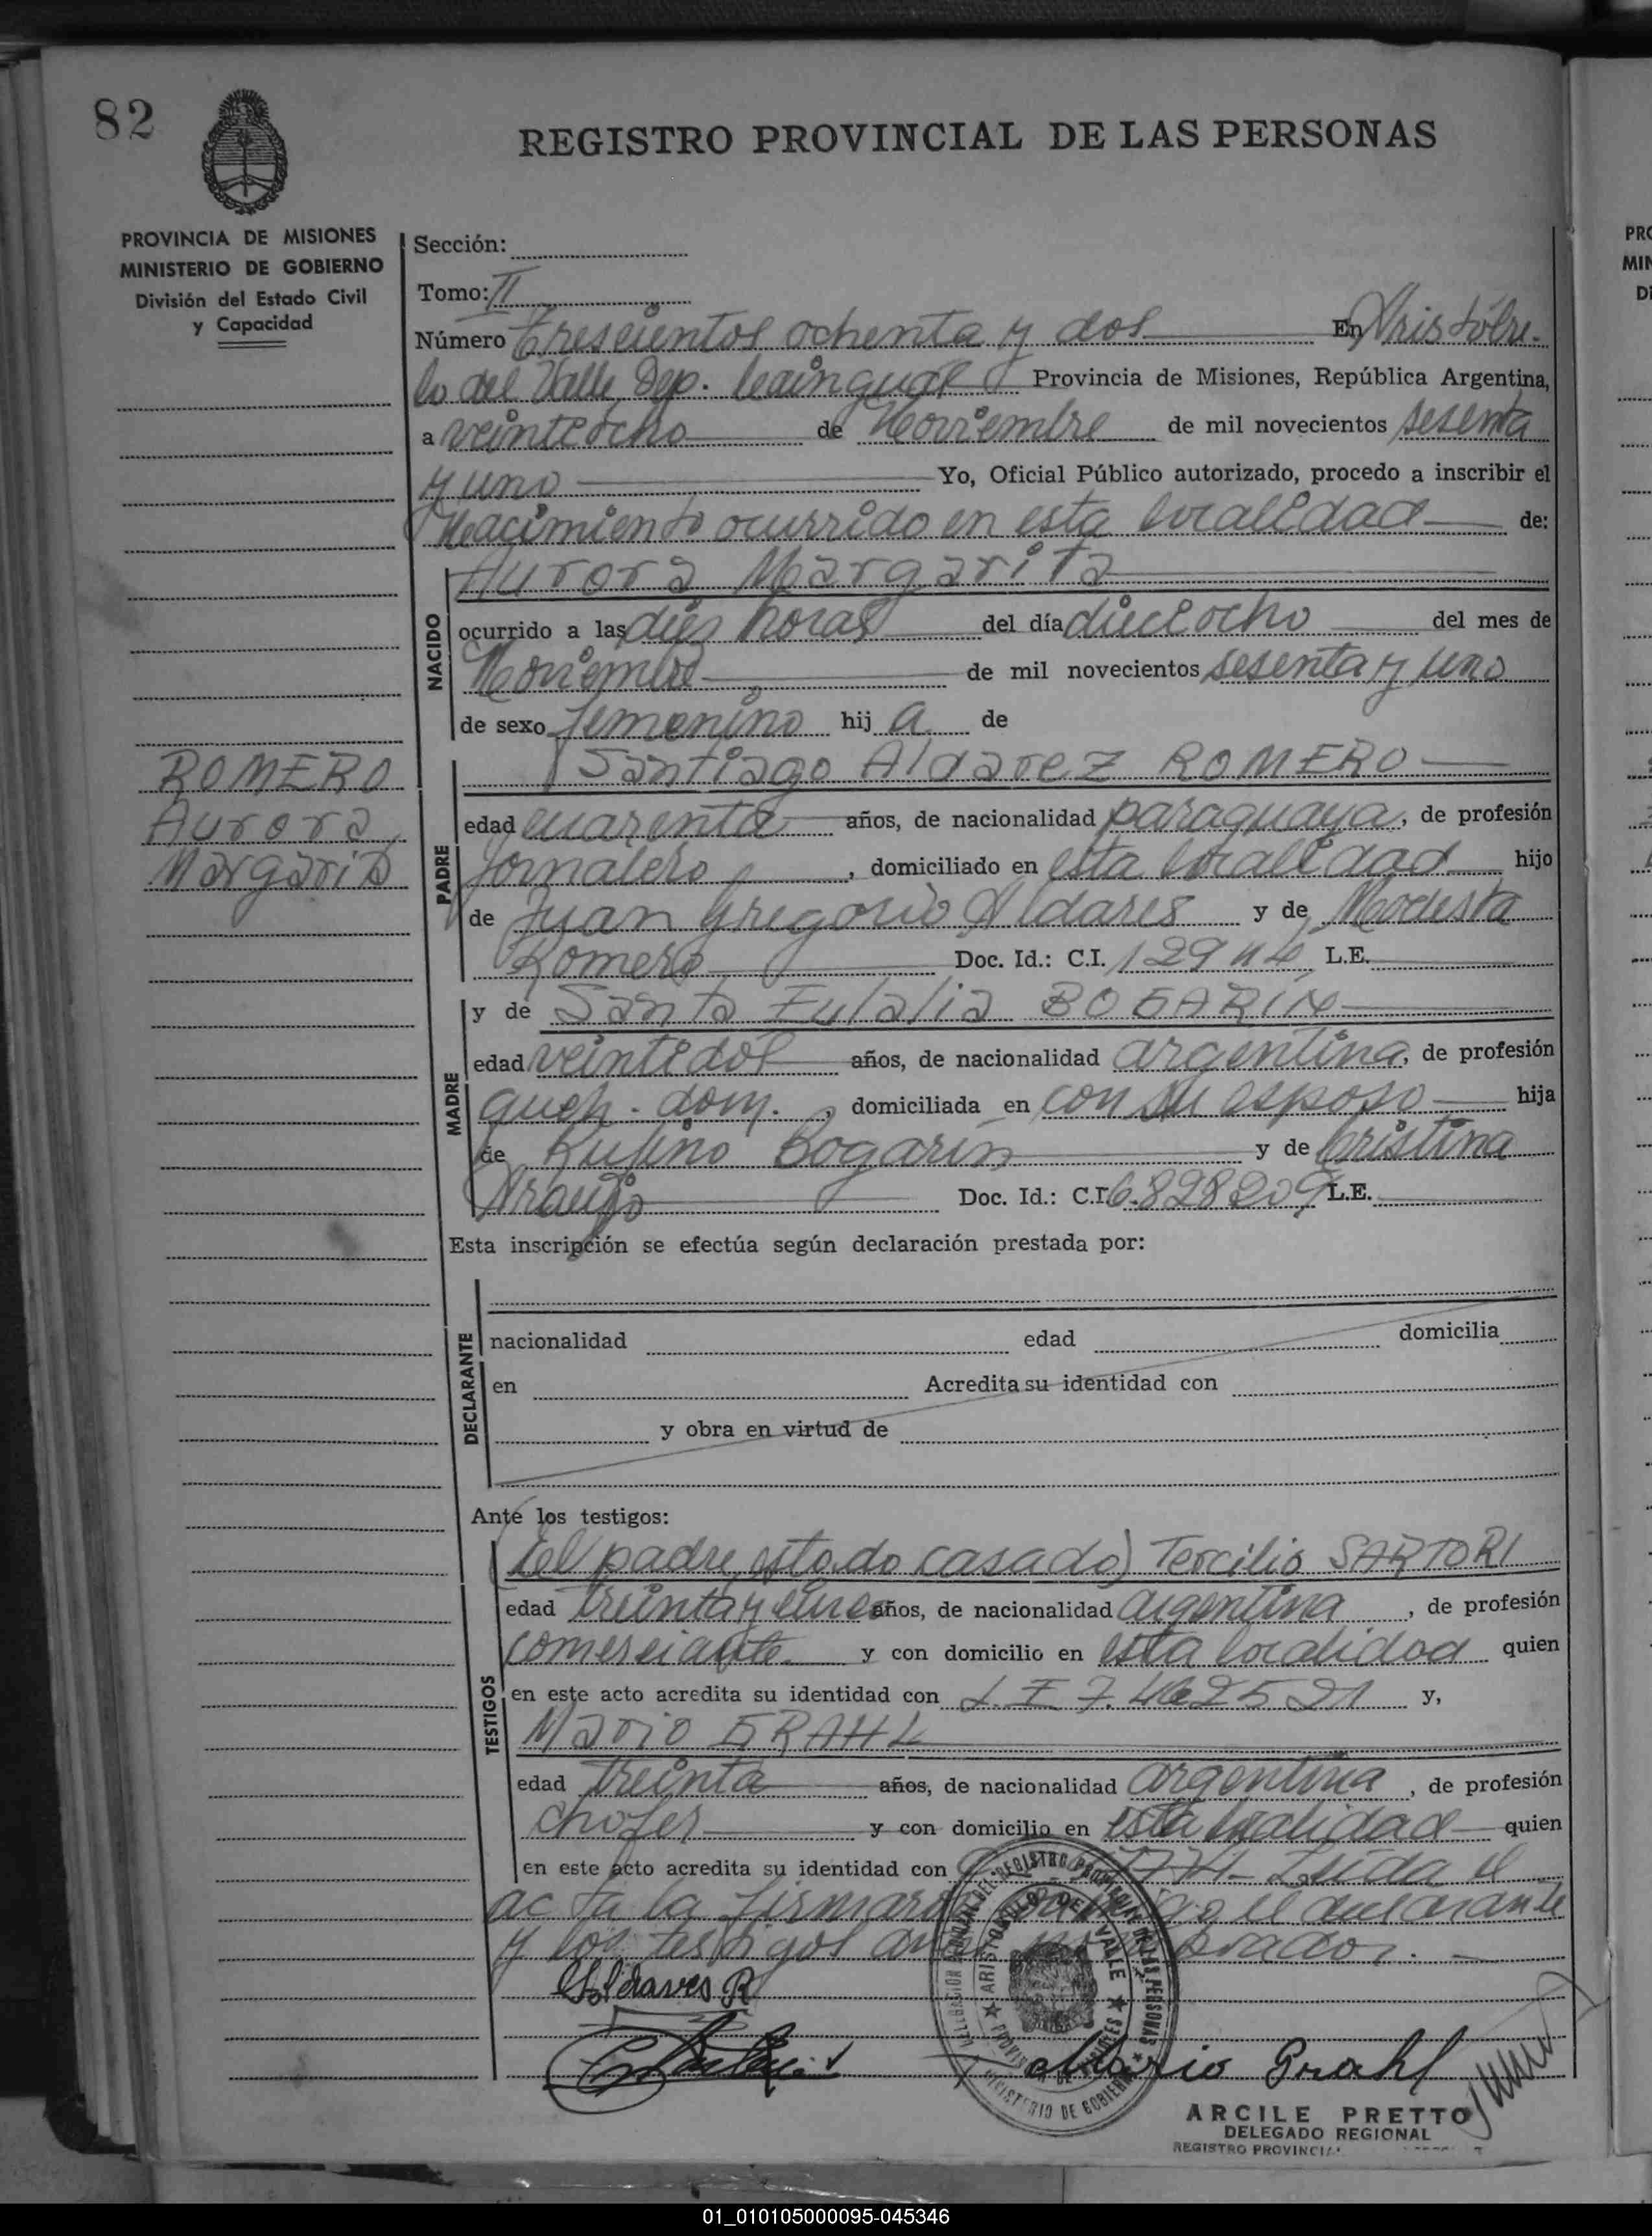 82
REGISTRO PROVINCIAL DE LAS PERSONAS
PROVINCIA DE MISIONES
MINISTERIO DE GOBIERNO
División del Estado Civil
y Capacidad
Sección:
Tomo: II
Número Trescientos ochenta y dos En Aristóbu-
lo del Valle, Dep. Cainguás Provincia de Misiones, República Argentina,
a veintiocho de Noviembre de mil novecientos sesenta
y uno Yo, Oficial Público autorizado, procedo a inscribir el
Nacimiento ocurrido en esta localidad de:
NACIDO
Aurora Margarita
ocurrido a las diez horas del día dieciocho del mes de
Noviembre de mil novecientos sesenta y uno
de sexo femenino hij a de
ROMERO
Aurora
Margarita
PADRE
Santiago Aldarez ROMERO
edad cuarenta años, de nacionalidad paraguaya, de profesión
jornalero, domiciliado en esta localidad hijo
de Juan Gregorio Aldares y de Modesta
Romero Doc. Id.: C.I. L.E.
MADRE
y de Santa Eulalia BOGARIN
edad veintidos años, de nacionalidad argentina, de profesión
queh. dom., domiciliada en con su esposo hija
de Rufino Bogarin y de Cristina
Araujo Doc. Id.: C.I. 6.828209 L.E.
Esta inscripción se efectúa según declaración prestada por:
DECLARANTE
nacionalidad edad domicilia
en Acredita su identidad con
y obra en virtud de
Ante los testigos:
TESTIGOS
(el padre, estado casado) Tercilio SARTORI
edad treinta y años, de nacionalidad argentina, de profesión
comerciante y con domicilio en esta localidad quien
en este acto acredita su identidad con y,
Mario GRAHL
edad treinta años, de nacionalidad argentina, de profesión
chofer y con domicilio en esta localidad quien
en este acto acredita su identidad con Leida el
acta la firmaron el declarante
y los testigos
Mario Grahl
ARISTOBULO DEL VALLE
MINISTERIO DE GOBIERNO
ARCILE PRETTO
DELEGADO REGIONAL
REGISTRO PROVINCIA
PRO
MIN
Di
01_010105000095-045346